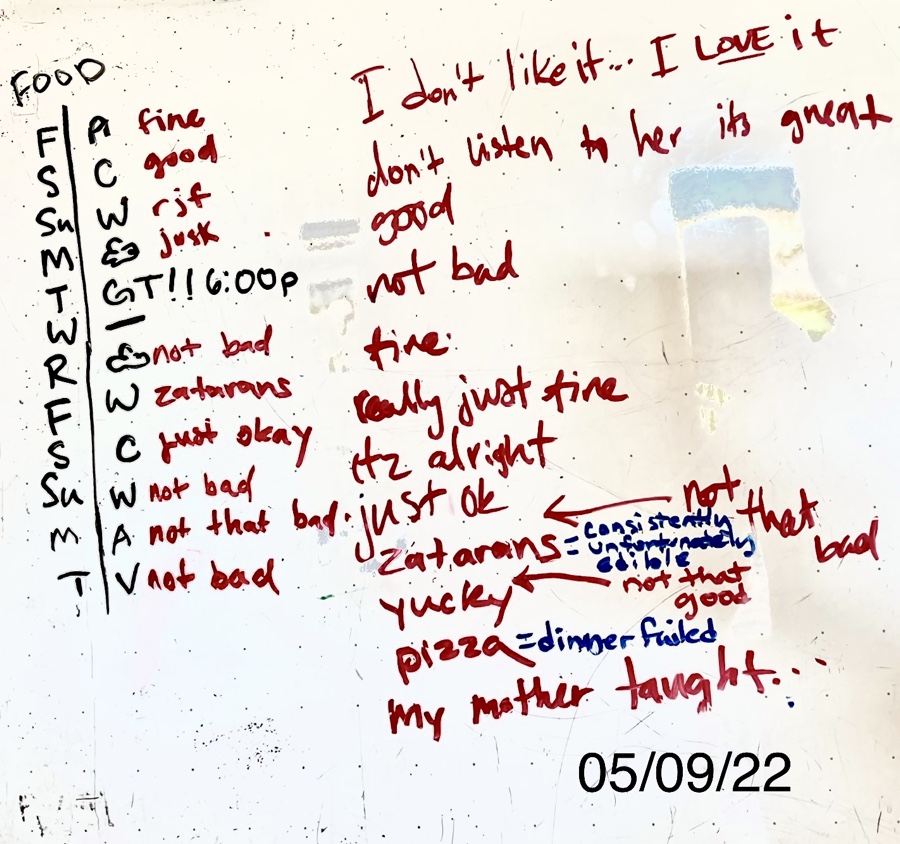 FOOD
F A fine
S C good
Su W rjf
M & jusk
T GT!! 6:00p
W —
R & not bad
F W zatarans
S C just okay
Su W not bad
M A not that bad.
T V not bad
I don't like it... I LOVE it
don't listen to her its great
good
not bad
fine.
really just fine
itz alright
just ok ← not that bad
zatarans = consistently
unfortunately
edible
yucky ← not that
good
pizza = dinner failed
my mother taught...
05/09/22